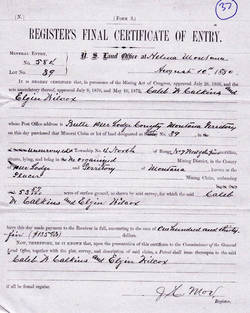 [N.] (FORM 3.) 37
REGISTER'S FINAL CERTIFICATE OF ENTRY.
MINERAL ENTRY, U. S. Land Office at Helena Montana
No. 582 August 10th 1880.
LOT No. 39
It is hereby certified that, in pursuance of the Mining Act of Congress, approved July 26, 1866, and the
acts amendatory thereof, approved July 9, 1870, and May 10, 1872, Caleb W Calkins and
Elgin Wilcox
whose Post Office address is Butte Deer Lodge County Montana Territory
on this day purchased that Mineral Claim or lot of land designated as Lot No. 39 in
unsurveyed Township 4 North of
and lying in the un organized Mining District, in the County
of Deer Lodge and Territory of Montana
Placer Mining Claim, embracing
acres of surface ground, as shown by said survey, for which the said Caleb
W Calkins and Elgin Wilcox
have this day made payment to the Receiver in full, amounting to the sum of One hundred and thirty
five ($135 )
Now, therefore, be it known that, upon the presentation of this certificate to the Commissioner of the General
Land Office, together with the plat, survey, and description of said claim, a Patent shall issue thereupon to the
said Caleb W Calkins and Elgin Wilcox
if all be found regular.
Register.